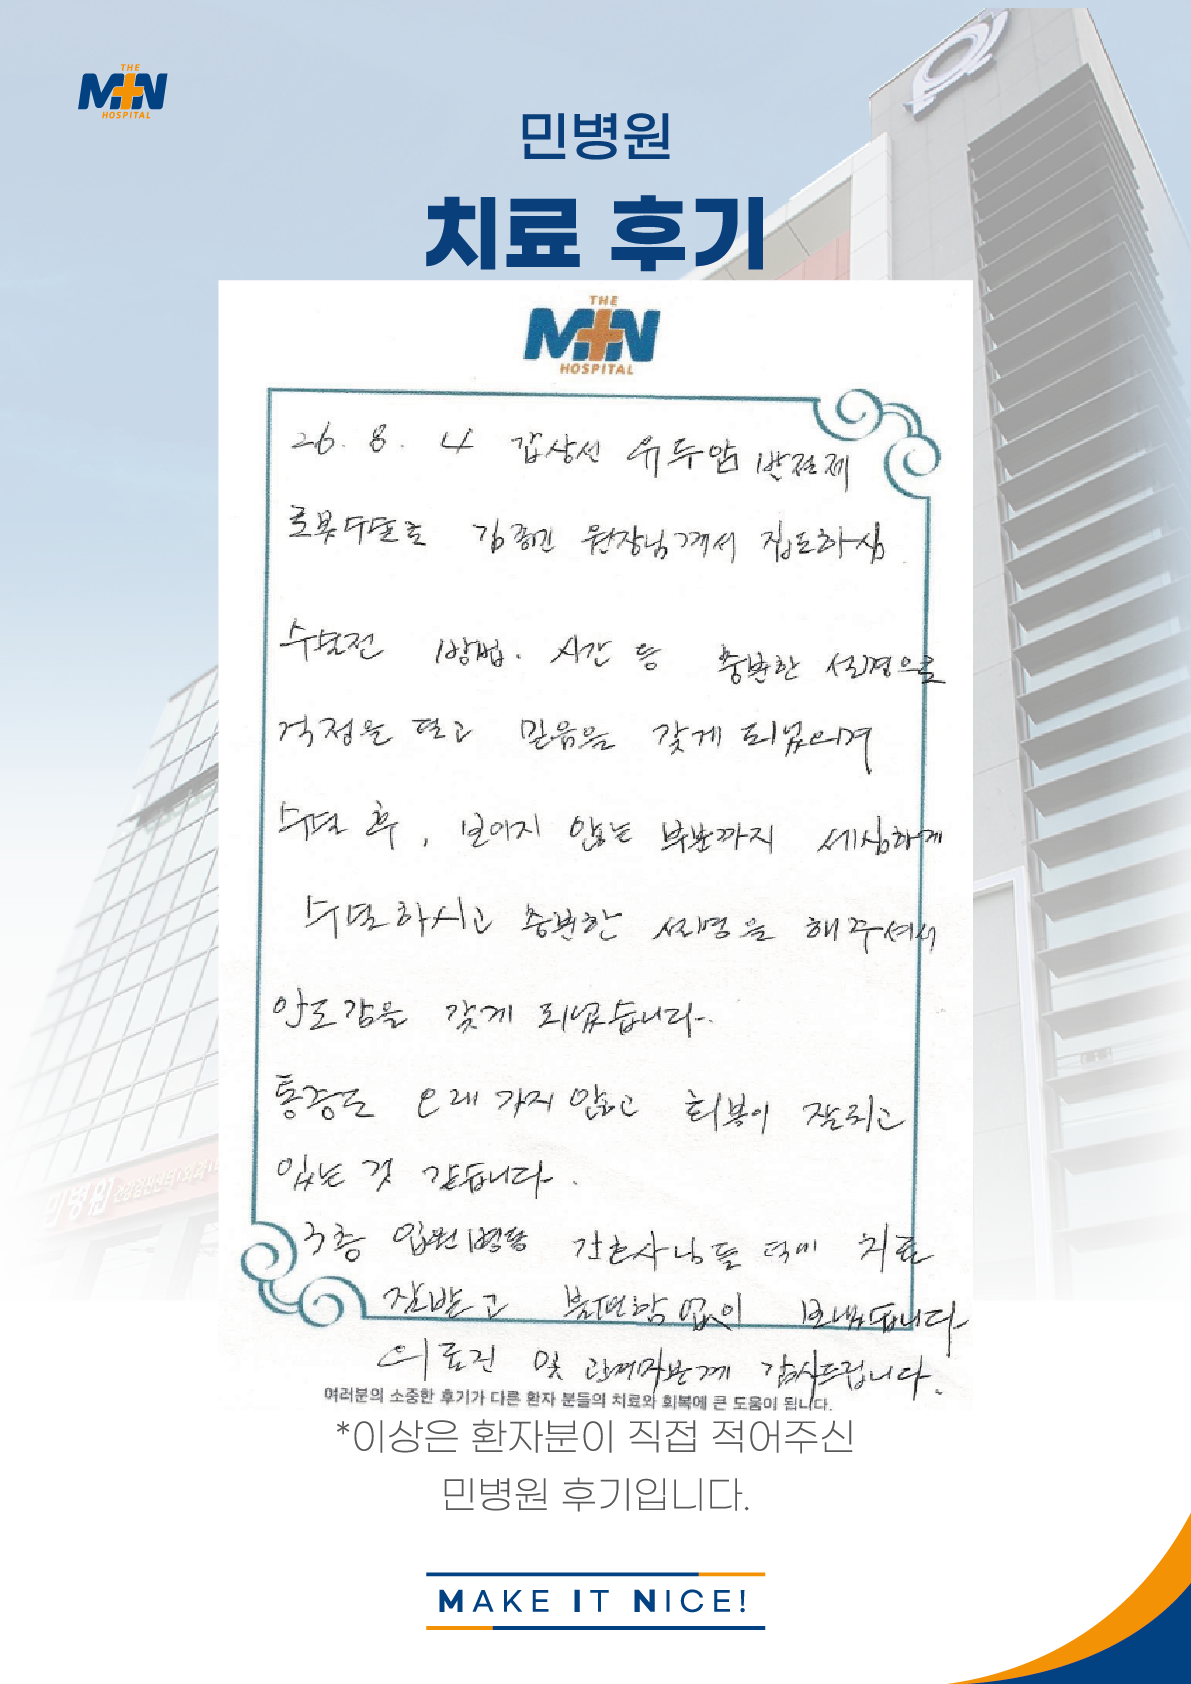 THE
MIN
HOSPITAL
민병원
치료 후기
THE
MIN
HOSPITAL
26. 8. 4 갑상선 유두암 반절제
로봇수술로 김종민 원장님께서 집도하심
수술전 방법. 시간 등 충분한 설명으로
걱정을 덜고 믿음을 갖게 되었으며
수술 후, 보이지 않는 부분까지 세심하게
수술하시고 충분한 설명을 해주셔서
안도감을 갖게 되었습니다.
통증도 오래 가지 않고 회복이 잘되고
있는 것 같습니다.
3층 입원병동 간호사님들 덕에 치료
잘받고 불편함 없이 보냈습니다
의료진 및 관계자분께 감사드립니다.
여러분의 소중한 후기가 다른 환자 분들의 치료와 회복에 큰 도움이 됩니다.
*이상은 환자분이 직접 적어주신
민병원 후기입니다.
MAKE IT NICE!
민병원